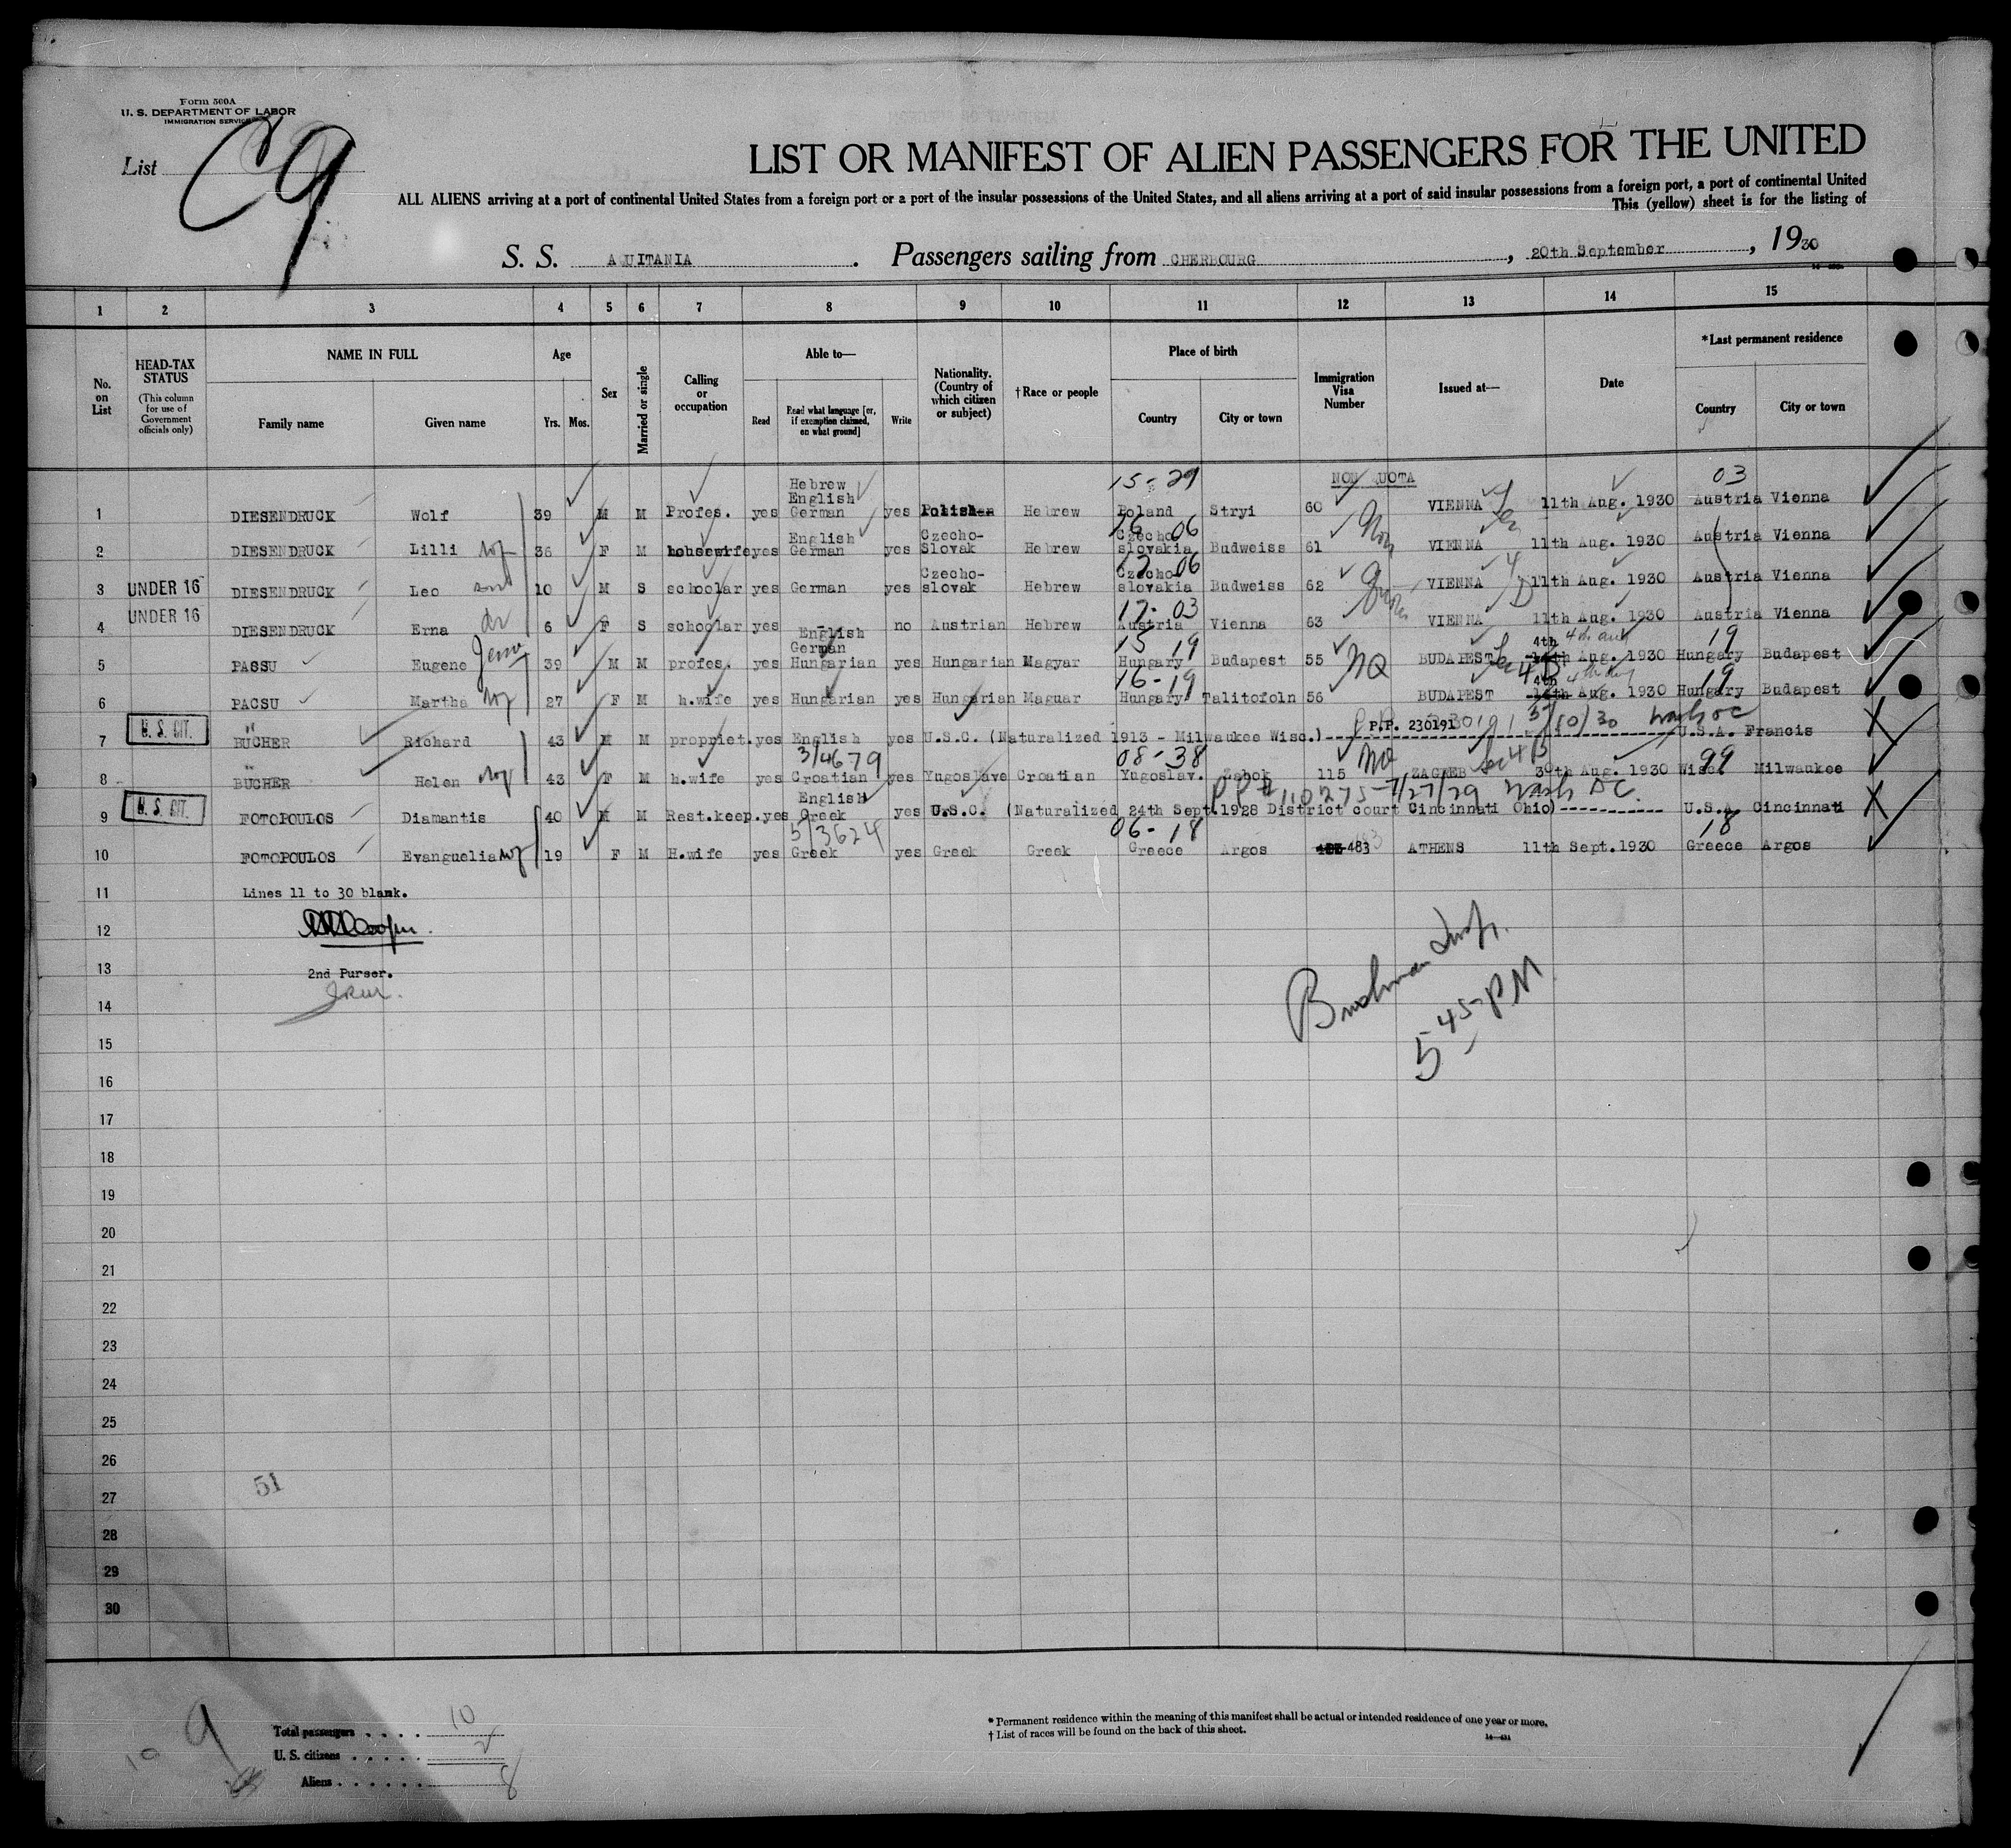 Form 500A
U. S. DEPARTMENT OF LABOR
IMMIGRATION SERVICE
List 9
LIST OR MANIFEST OF ALIEN PASSENGERS FOR THE UNITED
ALL ALIENS arriving at a port of continental United States from a foreign port or a port of the insular possessions of the United States, and all aliens arriving at a port of said insular possessions from a foreign port, a port of continental United
This (yellow) sheet is for the listing of
S. S. AQUITANIA. Passengers sailing from CHERBOURG, 20th September, 1930
1 2 3 4 5 6 7 8 9 10 11 12 13 14 15
No. on List
HEAD-TAX STATUS
(This column for use of Government officials only)
NAME IN FULL
Family name Given name
Age
Yrs. Mos.
Sex
Married or single
Calling or occupation
Able to—
Read Read what language [or, if exemption claimed, on what ground] Write
Nationality. (Country of which citizen or subject)
†Race or people
Place of birth
Country City or town
Immigration Visa Number
Issued at—
Date
*Last permanent residence
Country City or town
15-29 NON QUOTA 03
1 DIESENDRUCK Wolf 39 M M Profes. yes Hebrew English German yes Polish Hebrew Poland Stryi 60 VIENNA 11th Aug. 1930 Austria Vienna
16 06
2 DIESENDRUCK Lilli wf 36 F M housewife yes English German yes Czecho-Slovak Hebrew Czecho slovakia Budweiss 61 VIENNA 11th Aug. 1930 Austria Vienna
17 06
3 UNDER 16 DIESENDRUCK Leo son 10 M S schoolar yes German yes Czecho-slovak Hebrew Czecho slovakia Budweiss 62 VIENNA 11th Aug. 1930 Austria Vienna
17-03
4 UNDER 16 DIESENDRUCK Erna dr 6 F S schoolar yes - no Austrian Hebrew Austria Vienna 63 VIENNA 11th Aug. 1930 Austria Vienna
15 19 19
5 PACSU Eugene Jeno 39 M M profes. yes English German Hungarian yes Hungarian Magyar Hungary Budapest 55 NQ BUDAPEST 4th Aug. 1930 Hungary Budapest
16-19 19
6 PACSU Martha wf 27 F M h.wife yes Hungarian yes Hungarian Maguar Hungary Talitofoln 56 BUDAPEST 4th Aug. 1930 Hungary Budapest
P.P. 230191 5/10/30 Wash DC
7 U. S. CIT. BÜCHER Richard 43 M M propriet. yes English yes U.S.C. (Naturalized 1913 - Milwaukee Wisc.) P.P. 230191 U.S.A. Francis
3/4679 08-38 99
8 BÜCHER Helen wf 43 F M h.wife yes Croatian yes Yugoslave Croatian Yugoslav. Zabok 115 NQ ZAGREB Sec 4B 30th Aug. 1930 Wisc. Milwaukee
PP# 110275-7/27/29 Wash DC
9 U. S. CIT. FOTOPOULOS Diamantis 40 M M Rest.keep. yes English Greek yes U.S.C. (Naturalized 24th Sept.1928 District court Cincinnati Ohio) U.S.A. Cincinnati
5/3624 06-18 18
10 FOTOPOULOS Evanguelia wf 19 F M H.wife yes Greek yes Greek Greek Greece Argos 483 ATHENS 11th Sept.1930 Greece Argos
11 Lines 11 to 30 blank.
12
13 2nd Purser.
14
15
16
17
18
19
20
21
22
23
24
25
26
27
28
29
30
5 45 PM
51
Total passengers . . . . 10
U. S. citizens . . . . . 2
Aliens . . . . . . 8
10 9
* Permanent residence within the meaning of this manifest shall be actual or intended residence of one year or more.
† List of races will be found on the back of this sheet.